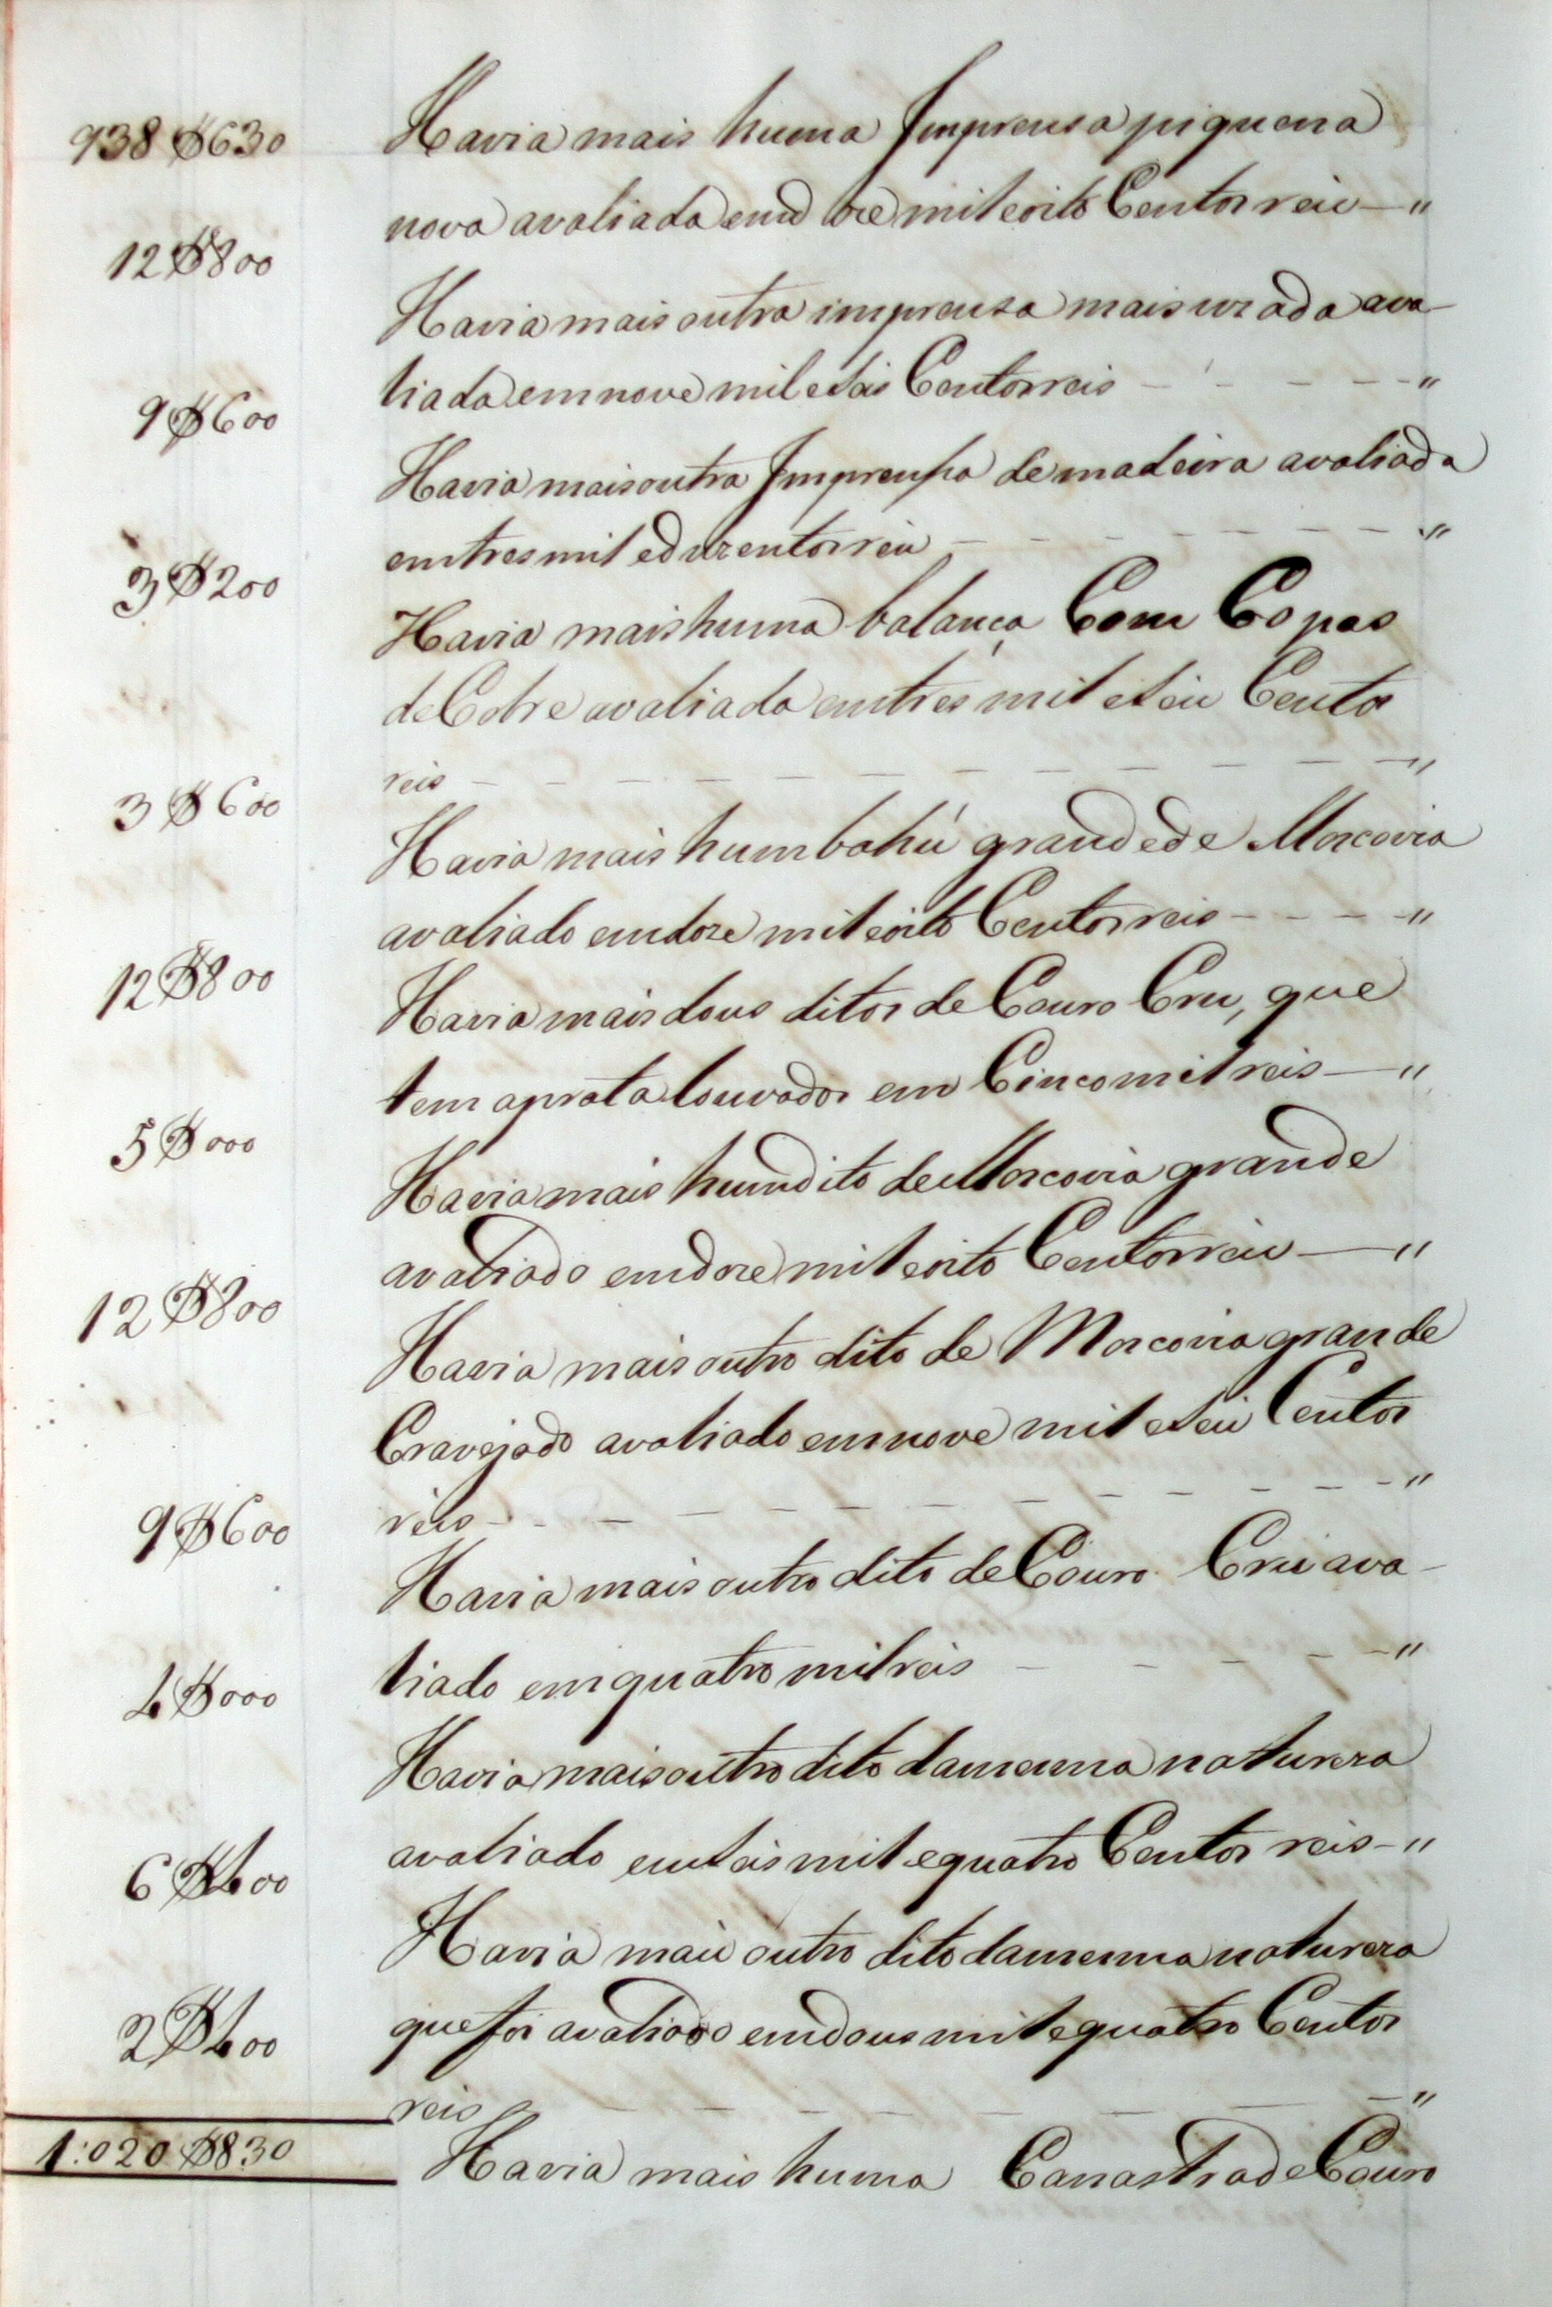 938$630 Havia mais huma Imprensa piquena
nova avaliada em doze mil e oito Centos reis — "
12$800
Havia mais outra imprensa mais uzada ava-
liada em nove mil e seis Centos reis - - - - - "
9$600
Havia mais outra Imprensa de madeira avaliada
em tres mil e duzentos reis - - - - - - "
3$200
Havia mais huma balança Com Copas
de Cobre avaliada em tres mil e seis Centos
reis - - - - - - - - - - - "
3$600
Havia mais hum bahú grande de Moscovia
avaliado em doze mil e oito Centos reis - - - - "
12$800
Havia mais dous ditos de Couro Cru, que
tem a prata louvados em Cinco mil reis — "
5$000
Havia mais hum dito de Moscovia grande
avaliado em doze mil e oito Centos reis — "
12$800
Havia mais outro dito de Moscovia grande
Cravejado avaliado em nove mil e seis Centos
reis - - - - - - - - - - - "
9$600
Havia mais outro dito de Couro Cru ava-
liado em quatro mil reis - - - - - "
4$000
Havia mais outro dito da mesma natureza
avaliado em seis mil e quatro Centos reis - "
6$400
Havia mais outro dito da mesma natureza
que foi avaliado em dous mil e quatro Centos
2$400
reis - - - - - - - - - "
1:020$830 Havia mais huma Canastra de Couro